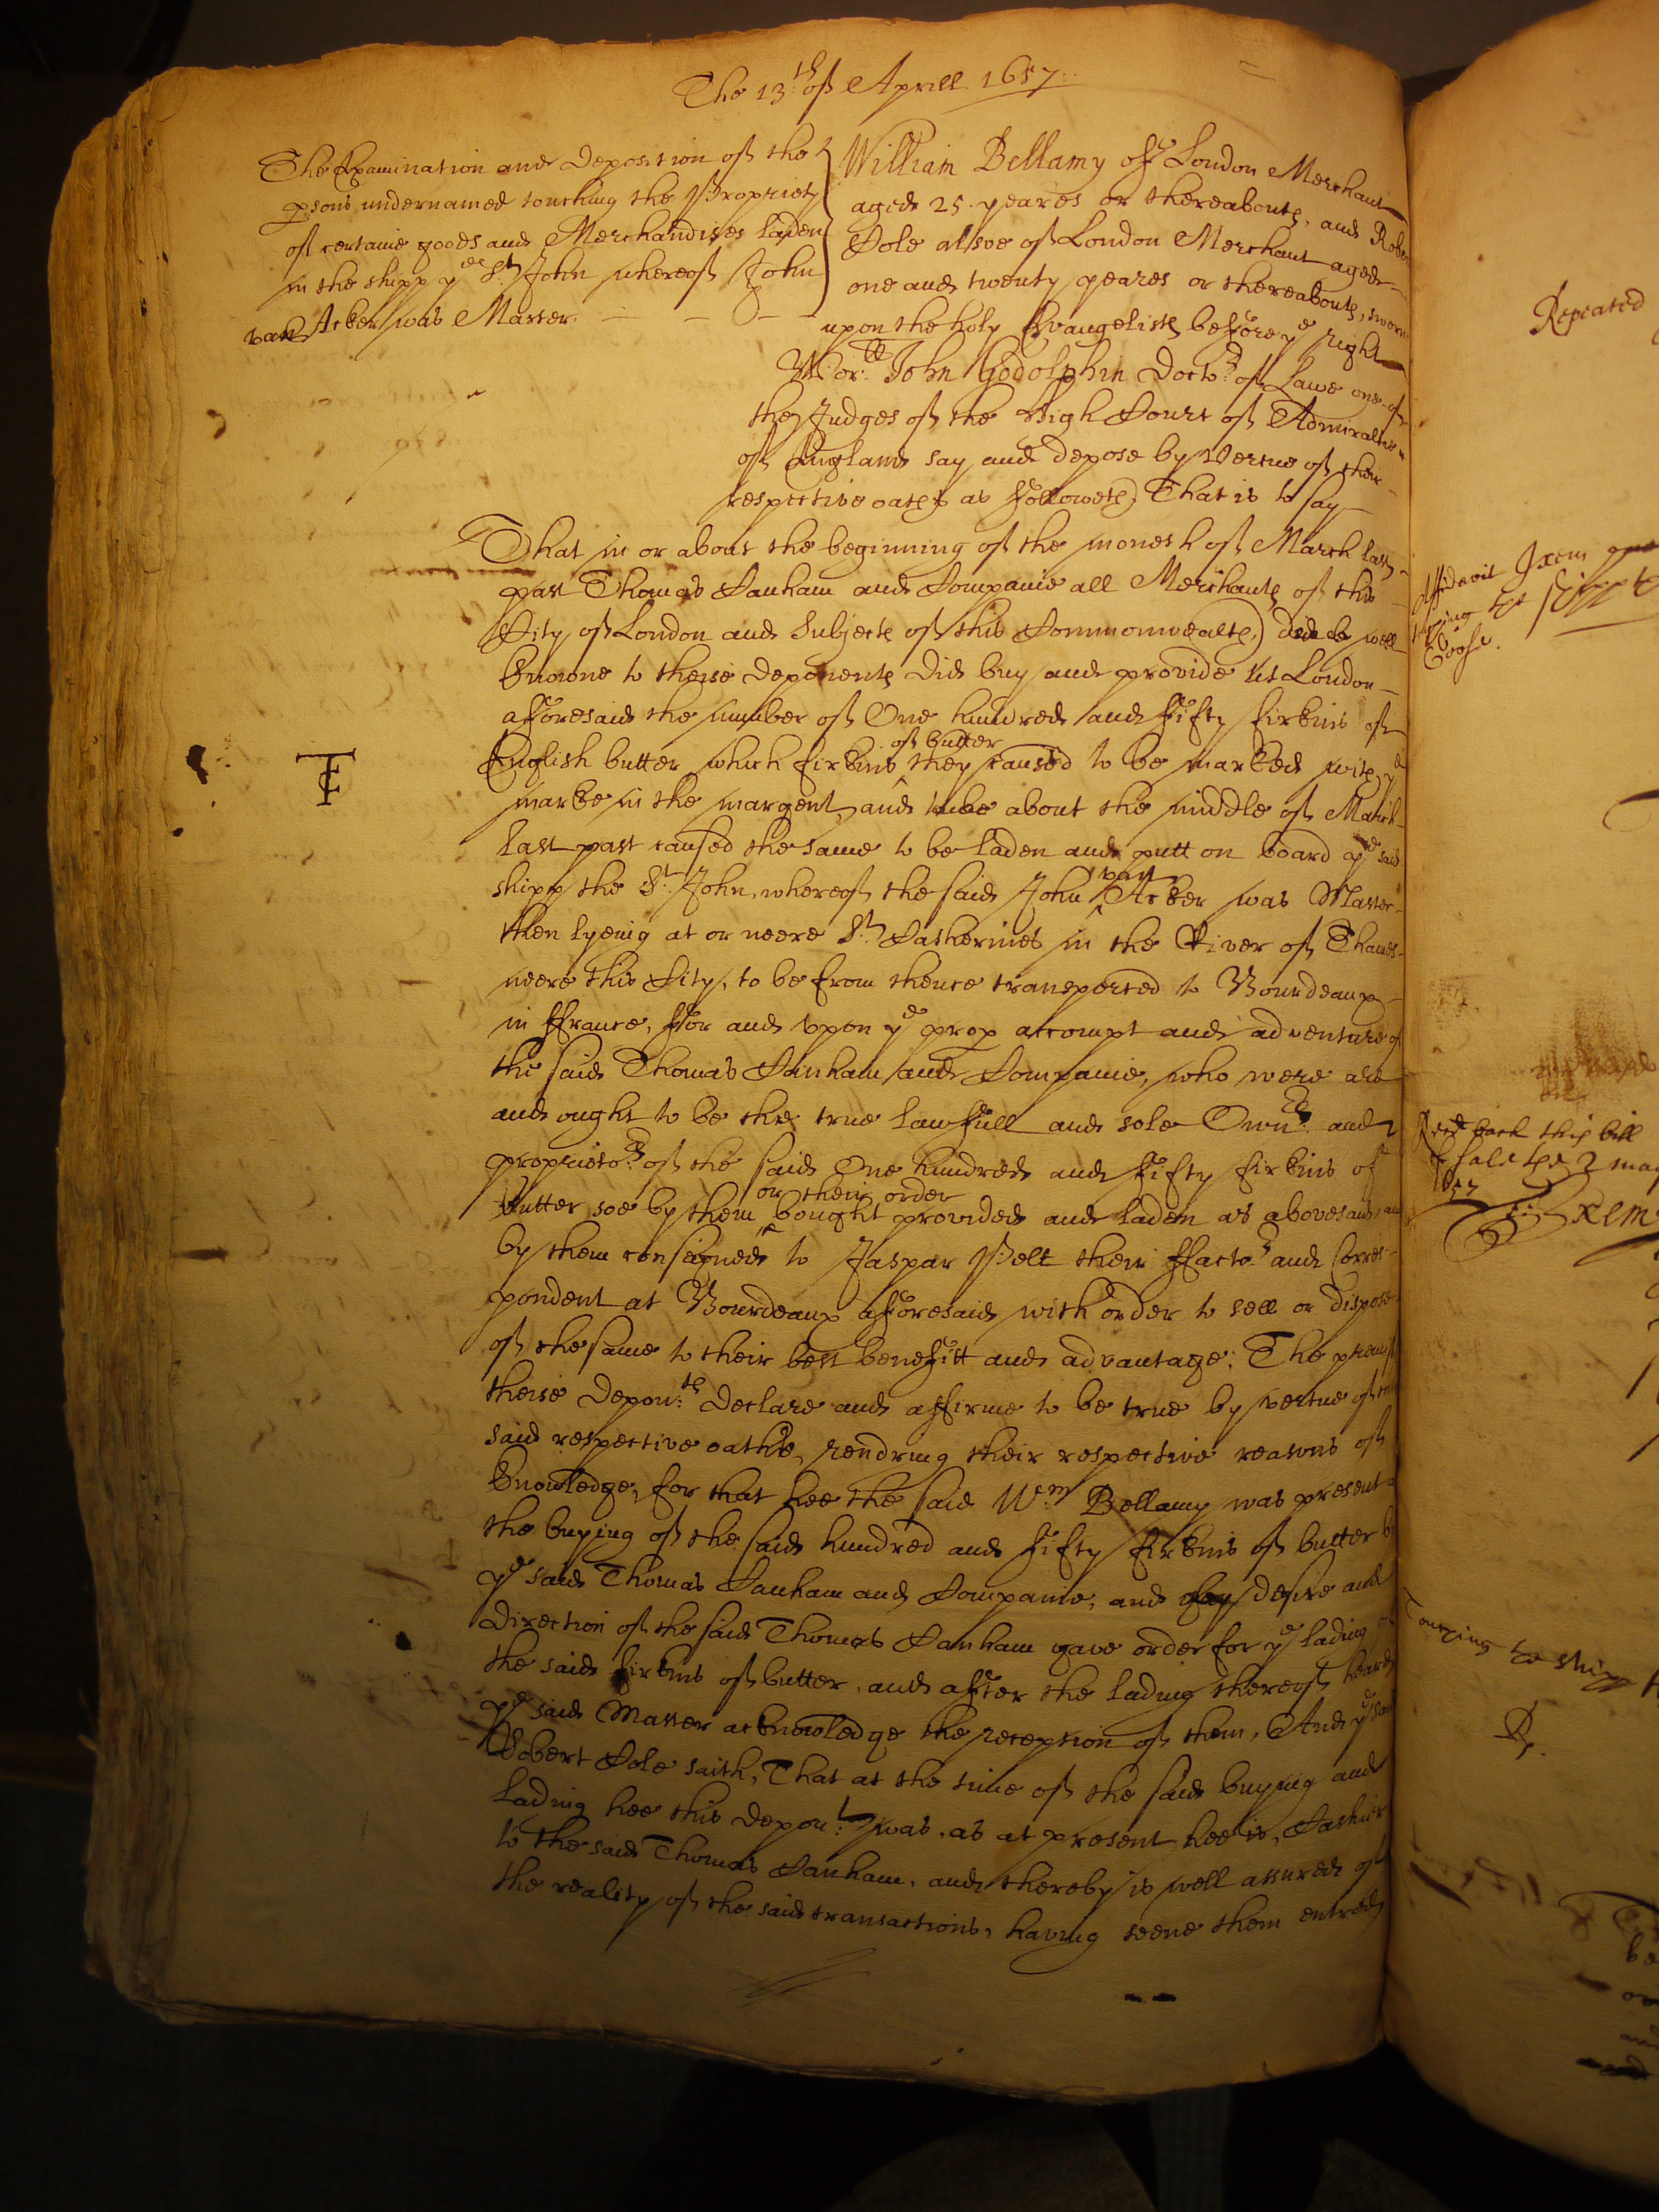 The 13th of Aprill 1657
The Examination and Deposition of the
psons undernamed touching the Propriety
of certaine goods and Merchandizes laden
in the shipp ye St John whereof John
van Acker was Master.
William Bellamy of London Merchant
aged 25 yeares or thereabouts, and Rober
Cole alsoe of London Merchant aged
one and twenty yeares or thereabouts, sworne
upon the holy Evangelists before ye right
Worll John Godolphin Doctor of Lawe one of
the Judges of the High Court of Admiraltie
of England say and depose by Vertue of their
respective oathes as followeth, That is to say
That in or about the beginning of the moneth of March last
past Thomas Canham and Companie all Merchants of this
City of London and Subjects of this Commonwealth, well
knowne to theise deponents did buy and provide at London
aforesaid the number of One hundred and fifty firkins of
English butter which firkins of butter they caused to be marked with ye
marke in the margent, and about the middle of March
last past caused the same to be laden and putt on board ye said
shipp the St John, whereof the said John van Acker was Master
TC
then lyeing at or neere St Catherines in the River of Thames
neere this City, to be from thence transported to Bourdeaux
in ffrance, for and upon ye prop accompt and adventure of
the said Thomas Canham and Companie, who were are
and ought to be the true lawfull and sole Ownrs and
proprietors of the said One hundred and fifty firkins of
butter soe by them or their order bought provided and laden as abovesaid, and
by them consigned to Jaspar Pelt their ffactor and Corres-
pondent at Bourdeaux aforesaid with order to sell or dispose
of the same to their best benefitt and advantage; The
theise Deponts declare and affirme to be true by vertue of
said respective oathes, rendring their respective reasons of
knowledge, for that hee the said Wm Bellamy was present
the buying of the said hundred and fifty firkins of butter
ye said Thomas Canham and Companie, and by desire and
direction of the said Thomas Canham gave order for ye lading of
the said firkins of butter, and after the lading thereof heard
ye said Master acknowledge the reception of them, And ye said
Robert Cole saith, That at the time of the said buying and
lading hee this depont was, as at present hee is, Cashier
to the said Thomas Canham, and thereby is well assured of
the reality of the said transactions, having seene them entred
Repeated
Recd back this bill
of sale the 2 may
1657
Touching the shipp